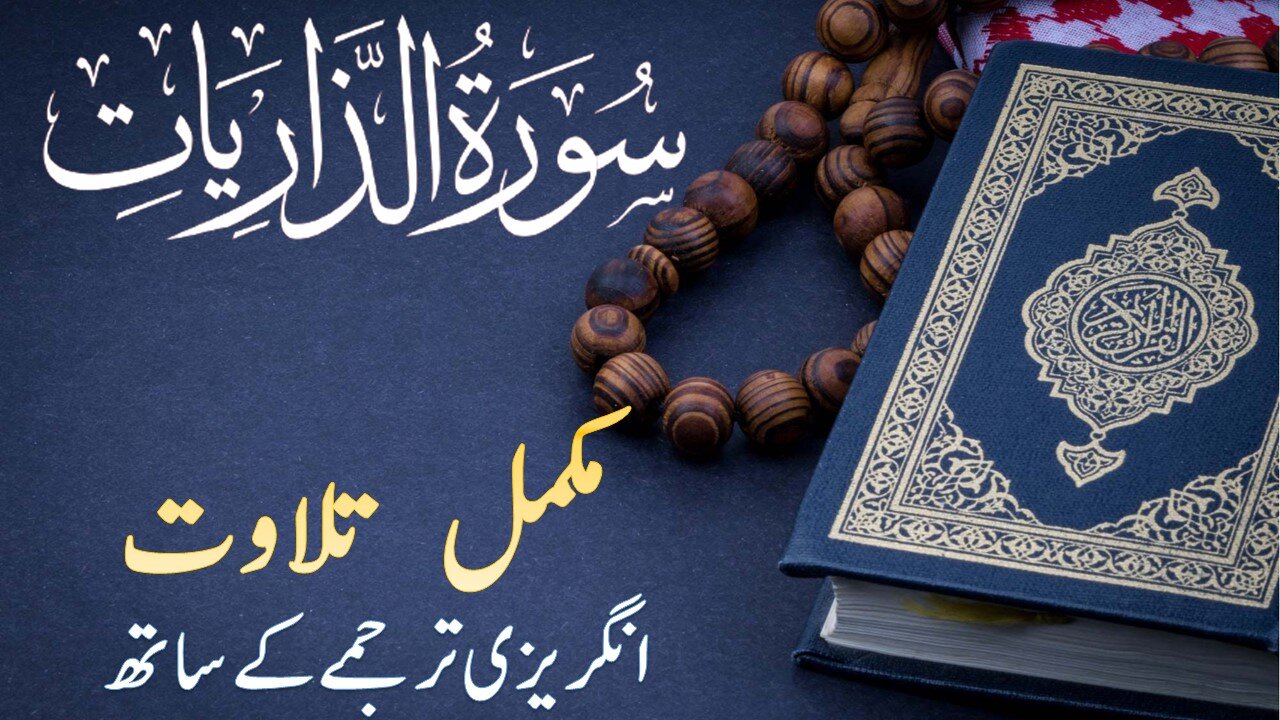 سُورَةُ الذَّارِيَاتِ
مکمل تلاوت
انگریزی ترجمے کے ساتھ
القرآن الكريم